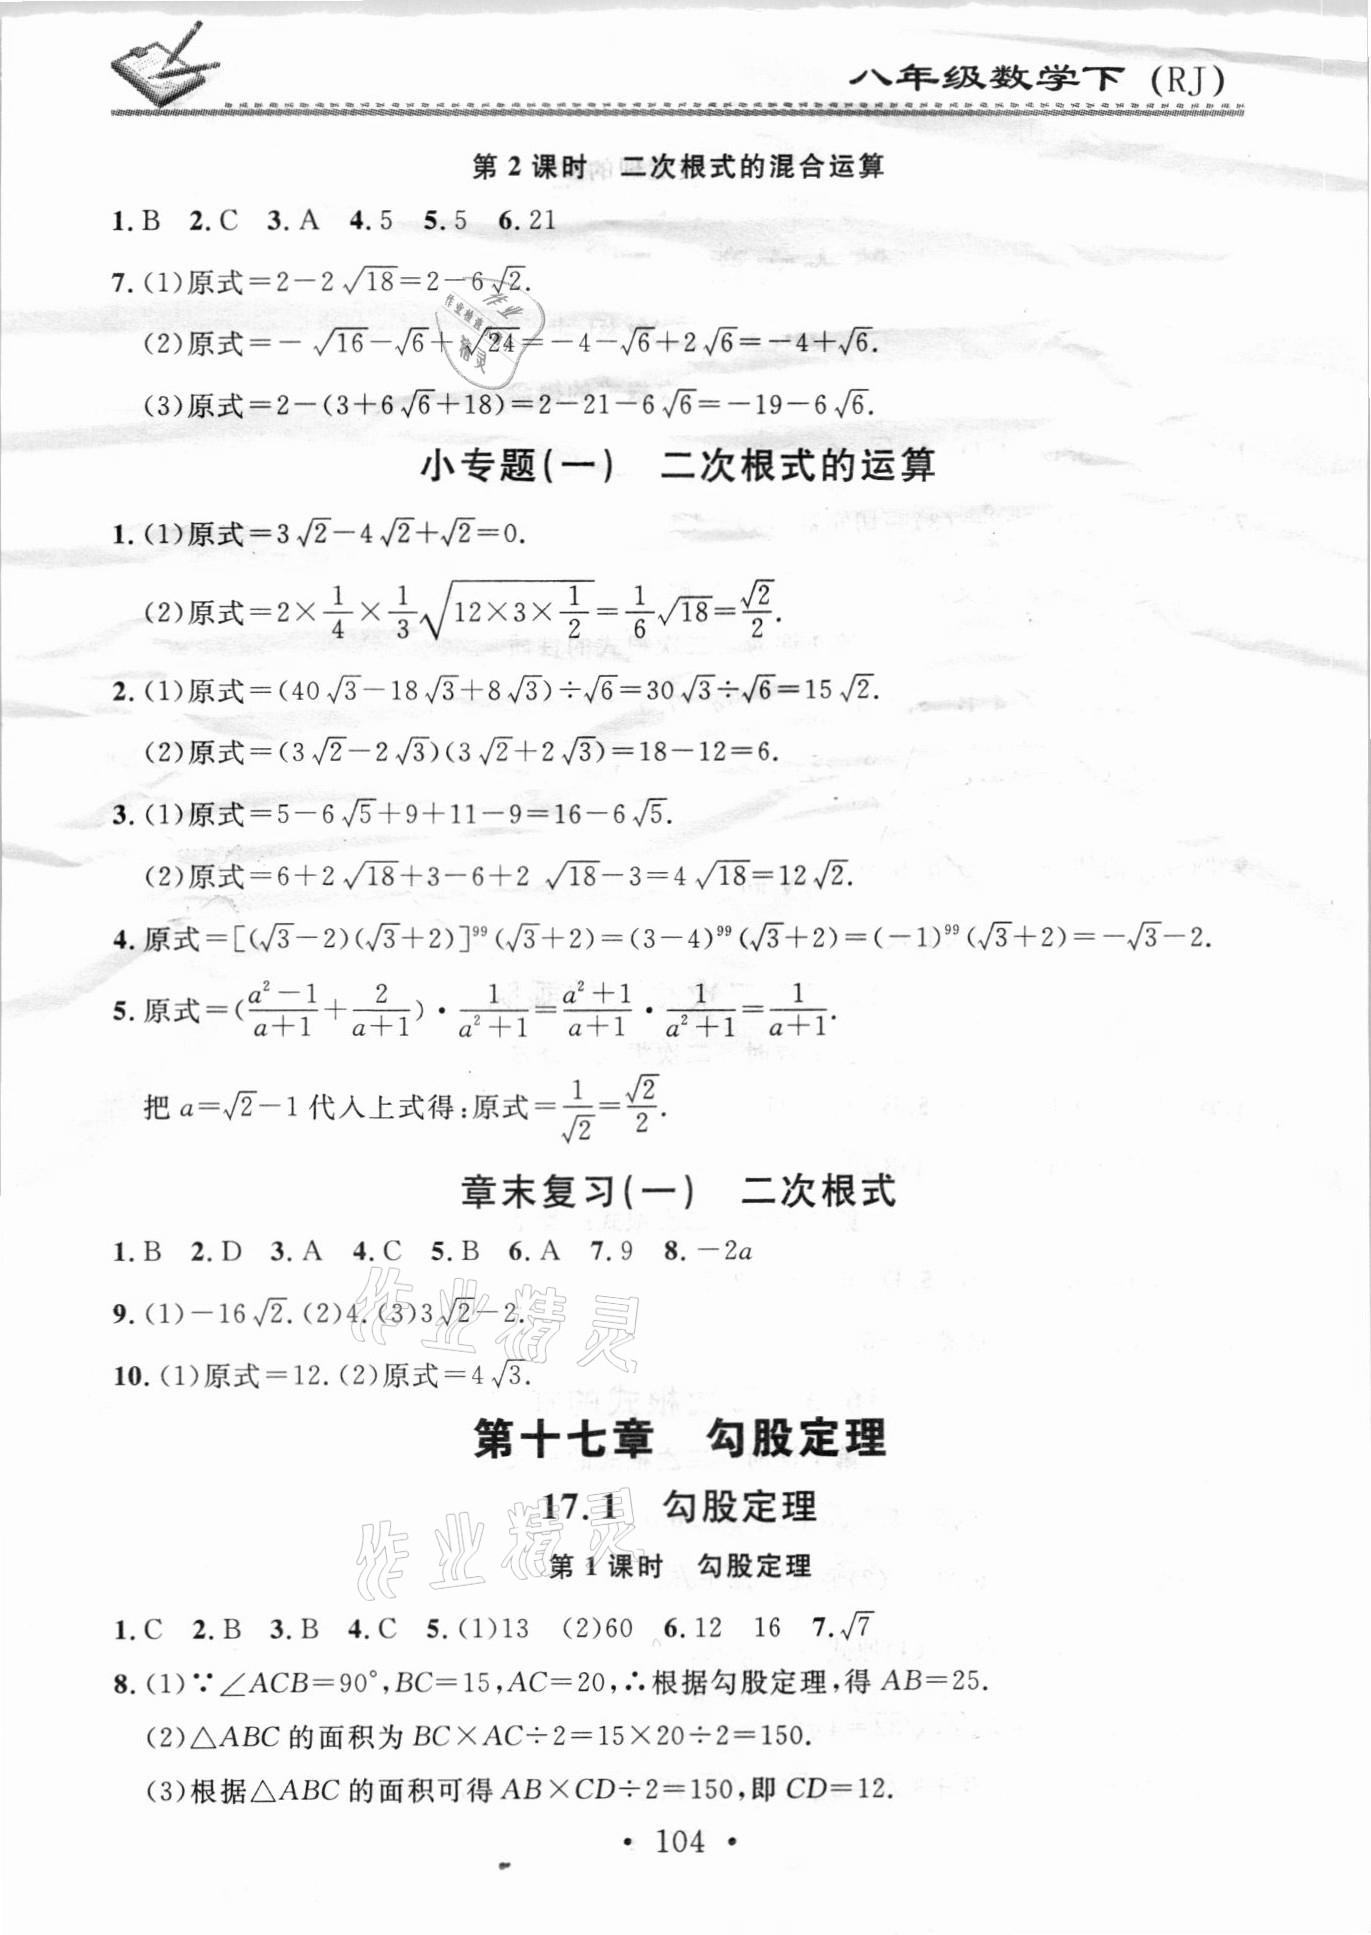 八年级数学下(RJ)
第2课时 二次根式的混合运算
1.B 2.C 3.A 4.5 5.5 6.21
7.(1)原式=2-2√18=2-6√2.
(2)原式=-√16-√6+√24=-4-√6+2√6=-4+√6.
(3)原式=2-(3+6√6+18)=2-21-6√6=-19-6√6.
小专题(一) 二次根式的运算
1.(1)原式=3√2-4√2+√2=0.
(2)原式=2×1/4×1/3√(12×3×1/2)=1/6√18=√2/2.
2.(1)原式=(40√3-18√3+8√3)÷√6=30√3÷√6=15√2.
(2)原式=(3√2-2√3)(3√2+2√3)=18-12=6.
3.(1)原式=5-6√5+9+11-9=16-6√5.
(2)原式=6+2√18+3-6+2√18-3=4√18=12√2.
4.原式=[(√3-2)(√3+2)]⁹⁹(√3+2)=(3-4)⁹⁹(√3+2)=(-1)⁹⁹(√3+2)=-√3-2.
5.原式=((a²-1)/(a+1)+2/(a+1))·1/(a²+1)=(a²+1)/(a+1)·1/(a²+1)=1/(a+1).
把a=√2-1代入上式得:原式=1/√2=√2/2.
章末复习(一) 二次根式
1.B 2.D 3.A 4.C 5.B 6.A 7.9 8.-2a
9.(1)-16√2.(2)4.(3)3√2-2.
10.(1)原式=12.(2)原式=4√3.
第十七章 勾股定理
17.1 勾股定理
第1课时 勾股定理
1.C 2.B 3.B 4.C 5.(1)13 (2)60 6.12 16 7.√7
8.(1)∵∠ACB=90°,BC=15,AC=20,∴根据勾股定理,得AB=25.
(2)△ABC的面积为BC×AC÷2=15×20÷2=150.
(3)根据△ABC的面积可得AB×CD÷2=150,即CD=12.
·104·
作业精灵
作业精灵